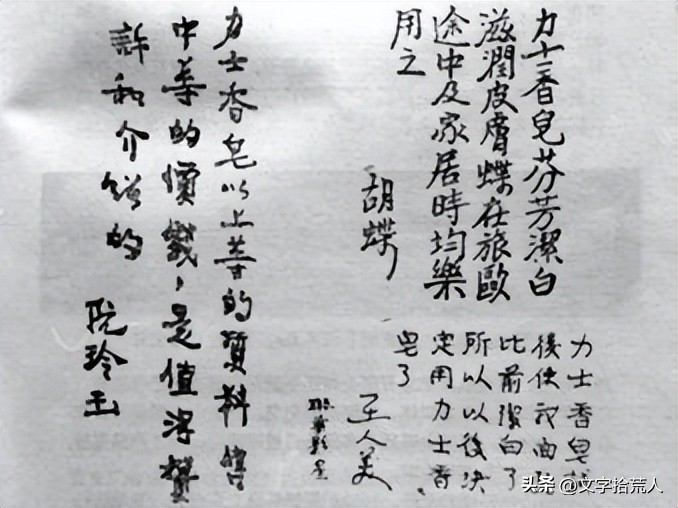 力士香皂芬芳潔白
滋潤皮膚蝶在旅歐
途中及家居時均樂
用之
胡蝶
力士香皂
後使我油
比前潔白了
所以以後決
定用力士香
皂了
王人美
影星
力士香皂以上等的質料售
中等的價錢,是值得贊
許和介紹的
阮玲玉
头条 @文字拾荒人